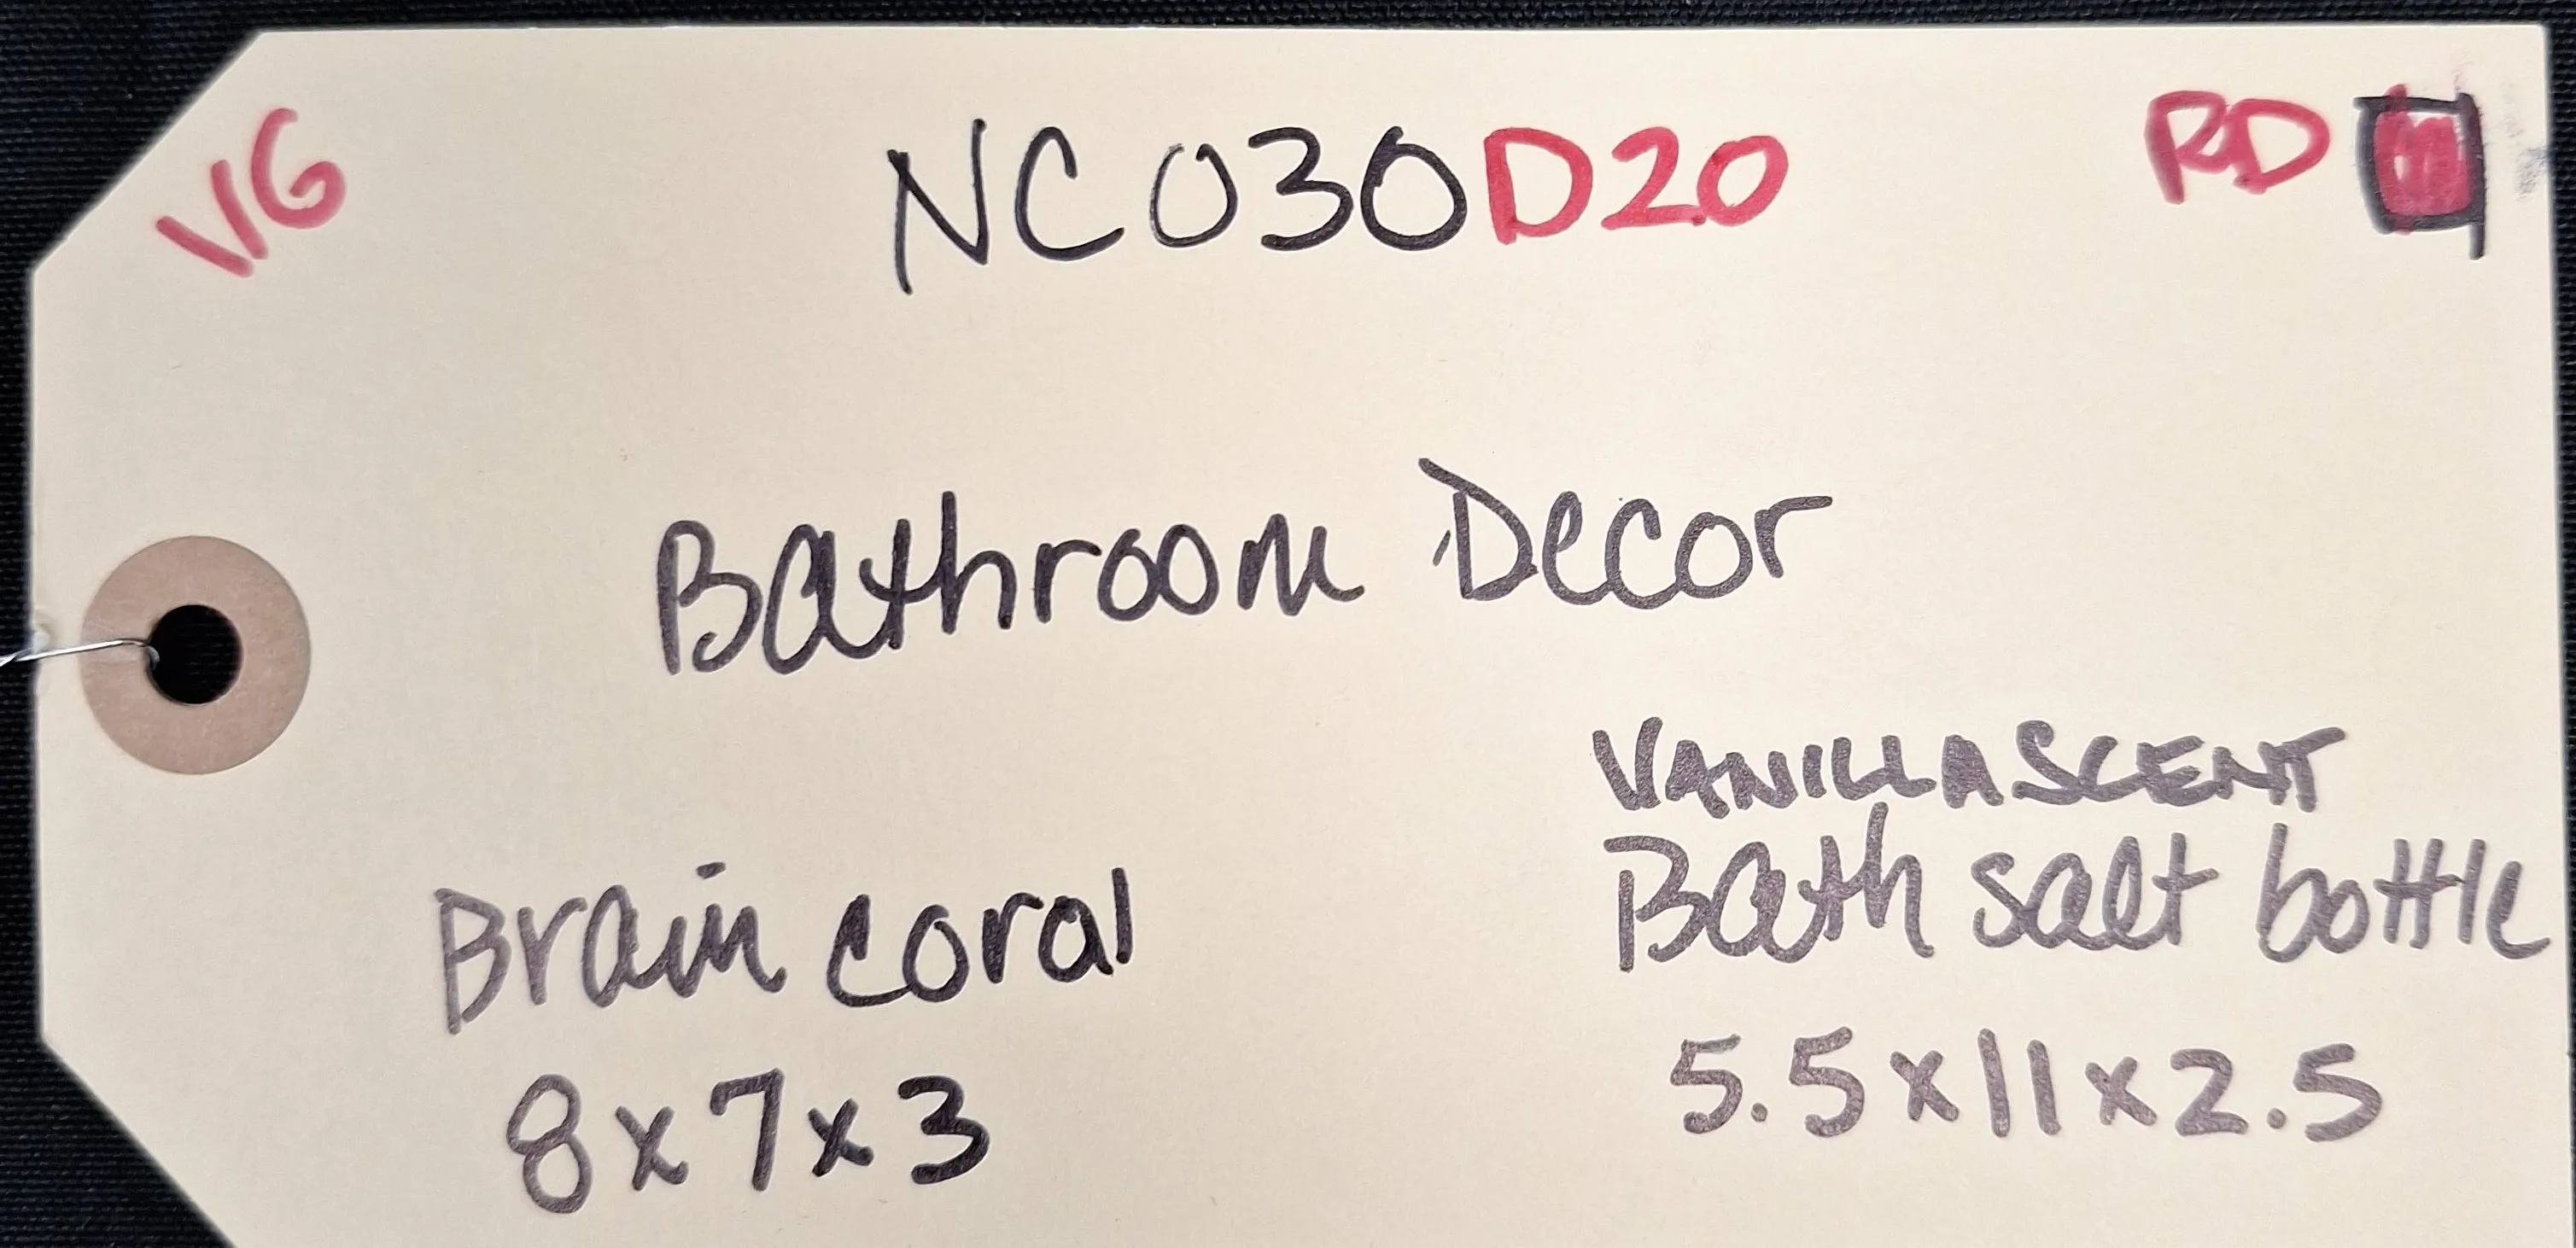 VG NC030D20 RD
Bathroom Decor
VANILLA SCENT
Brain coral Bath salt bottle
8x7x3 5.5x11x2.5